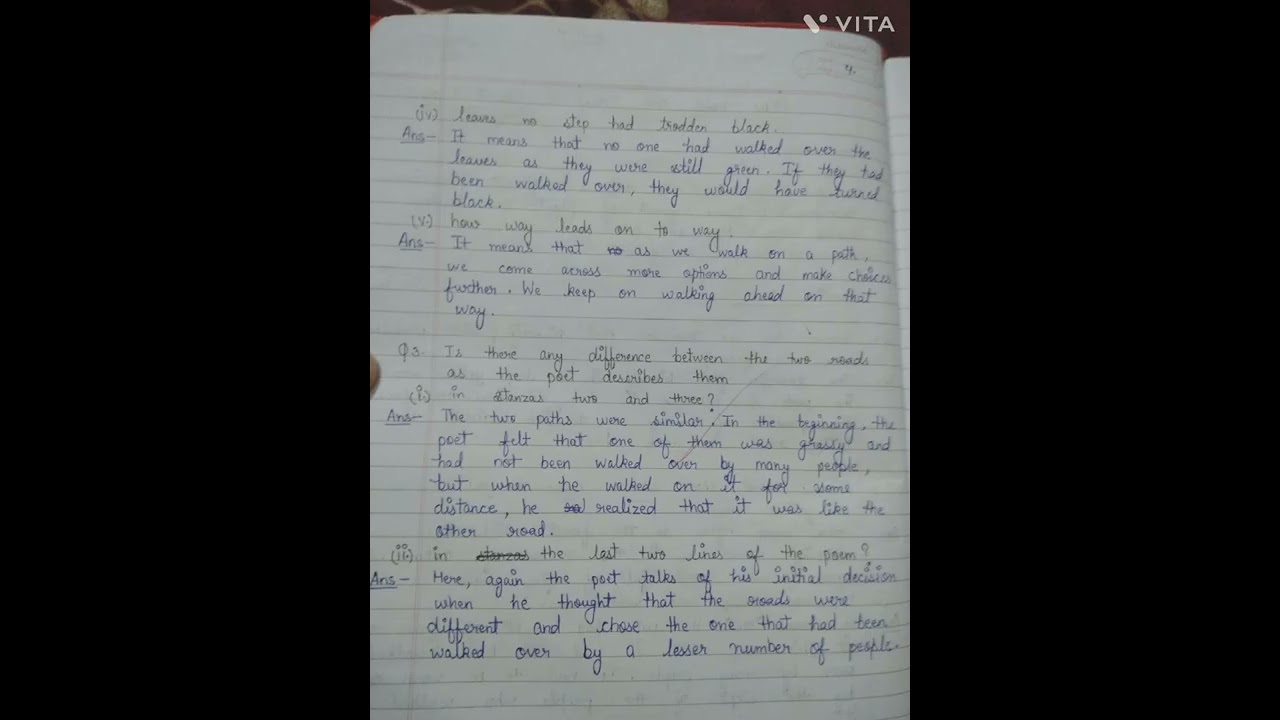 VITA
4.
(iv) leaves no step had trodden black.
Ans- It means that no one had walked over the
leaves as they were still green. If they had
been walked over, they would have turned
black.
(v.) how way leads on to way.
Ans- It means that no as we walk on a path,
we come across more options and make choices
further. We keep on walking ahead on that
way.
Q3. Is there any difference between the two roads
as the poet describes them
(i.) in stanzas two and three?
Ans- The two paths were similar. In the beginning, the
poet felt that one of them was grassy and
had not been walked over by many people,
but when he walked on it for some
distance, he realized that it was like the
other road.
(ii.) in stanzas the last two lines of the poem?
Ans- Here, again the poet talks of his initial decision
when he thought that the roads were
different and chose the one that had been
walked over by a lesser number of people.